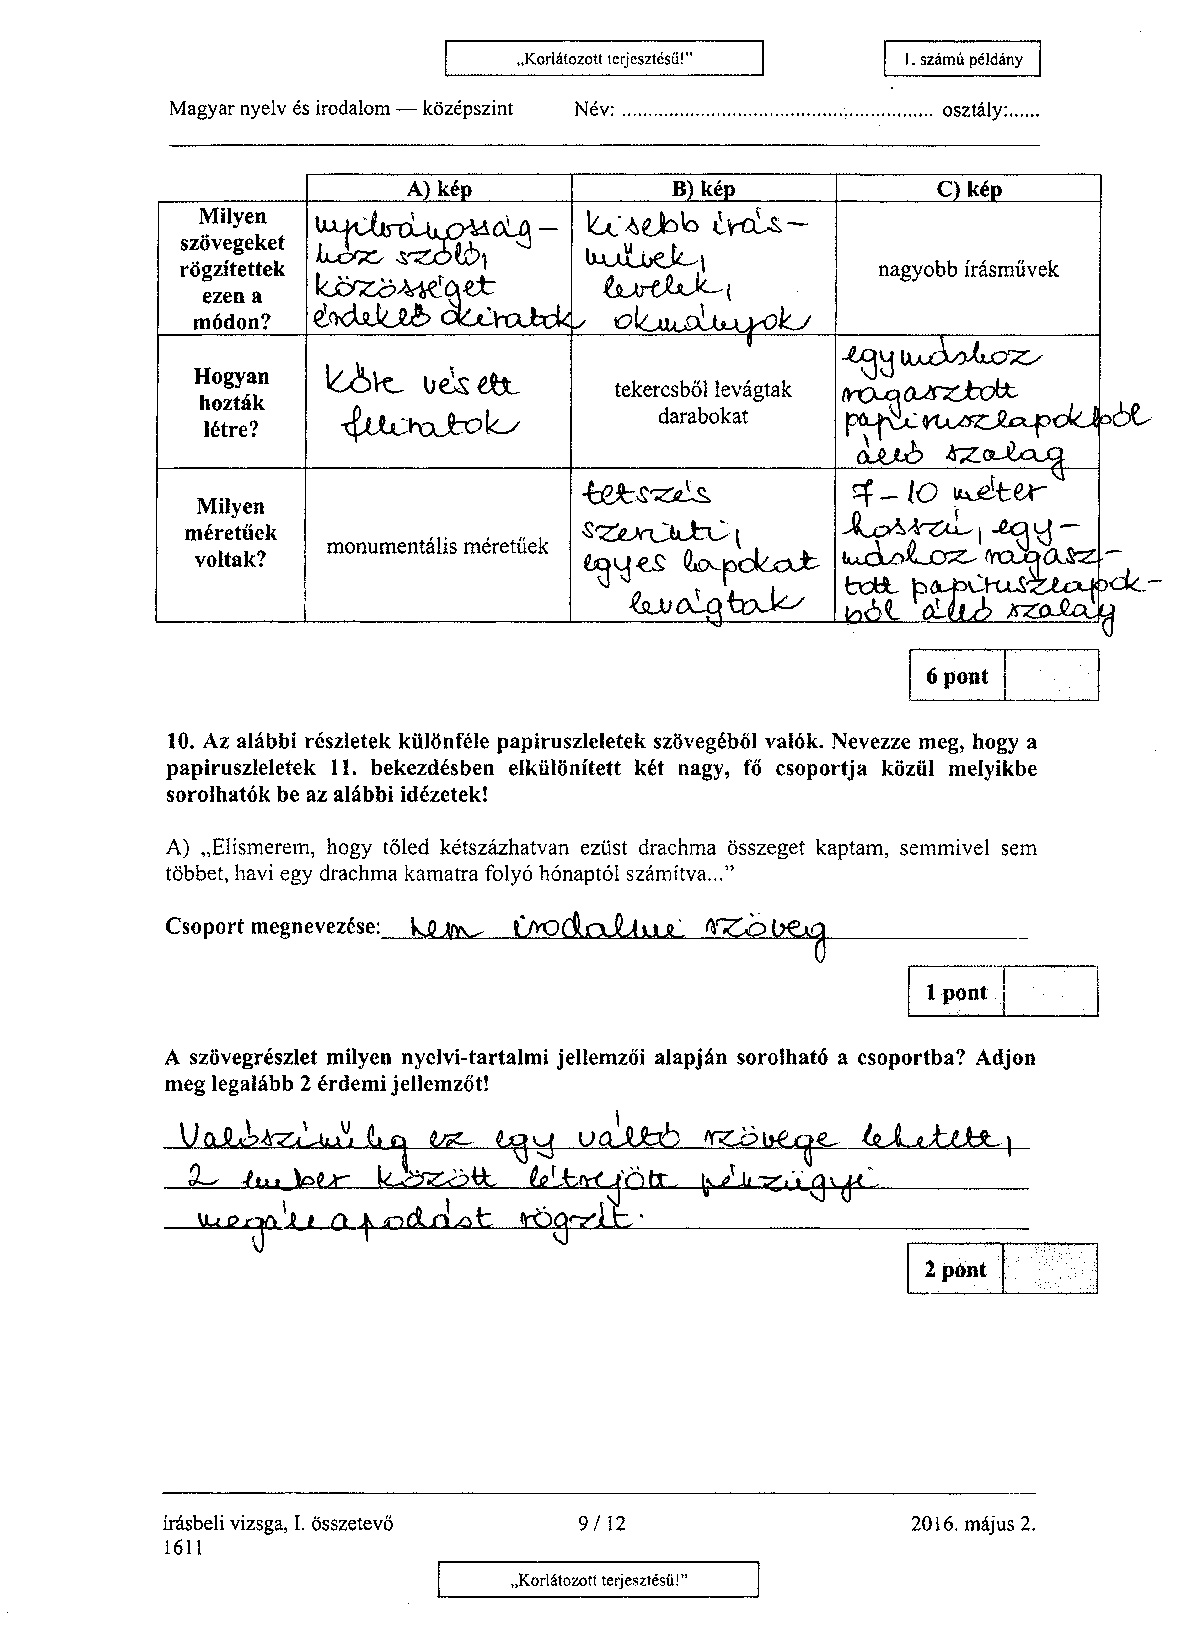 „Korlátozott terjesztésű!”
I. számú példány
Magyar nyelv és irodalom — középszint Név: ........................................................... osztály:......
A) kép B) kép C) kép
Milyen szövegeket rögzítettek ezen a módon?
nyilvánosság-
hoz szóló,
közösséget
érdeklő okiratok
kisebb írás-
művek,
levelek,
okmányok
nagyobb írásművek
Hogyan hozták létre?
kőbe vésett
feliratok
tekercsből levágtak
darabokat
egymáshoz
ragasztott
papiruszlapokból
álló szalag
Milyen méretűek voltak?
monumentális méretűek
tetszés
szerinti,
egyes lapokat
levágtak
7-10 méter
hosszú, egy-
máshoz ragasz-
tott papiruszlapok-
ból álló szalag
6 pont
10. Az alábbi részletek különféle papiruszleletek szövegéből valók. Nevezze meg, hogy a
papiruszleletek 11. bekezdésben elkülönített két nagy, fő csoportja közül melyikbe
sorolhatók be az alábbi idézetek!
A) „Elismerem, hogy tőled kétszázhatvan ezüst drachma összeget kaptam, semmivel sem
többet, havi egy drachma kamatra folyó hónaptól számítva...”
Csoport megnevezése: nem irodalmi szöveg
1 pont
A szövegrészlet milyen nyelvi-tartalmi jellemzői alapján sorolható a csoportba? Adjon
meg legalább 2 érdemi jellemzőt!
Valószínűleg ez egy váltó szövege lehetett,
2 ember között létrejött pénzügyi
megállapodást rögzít.
2 pont
írásbeli vizsga, I. összetevő 9 / 12 2016. május 2.
1611
„Korlátozott terjesztésű!”